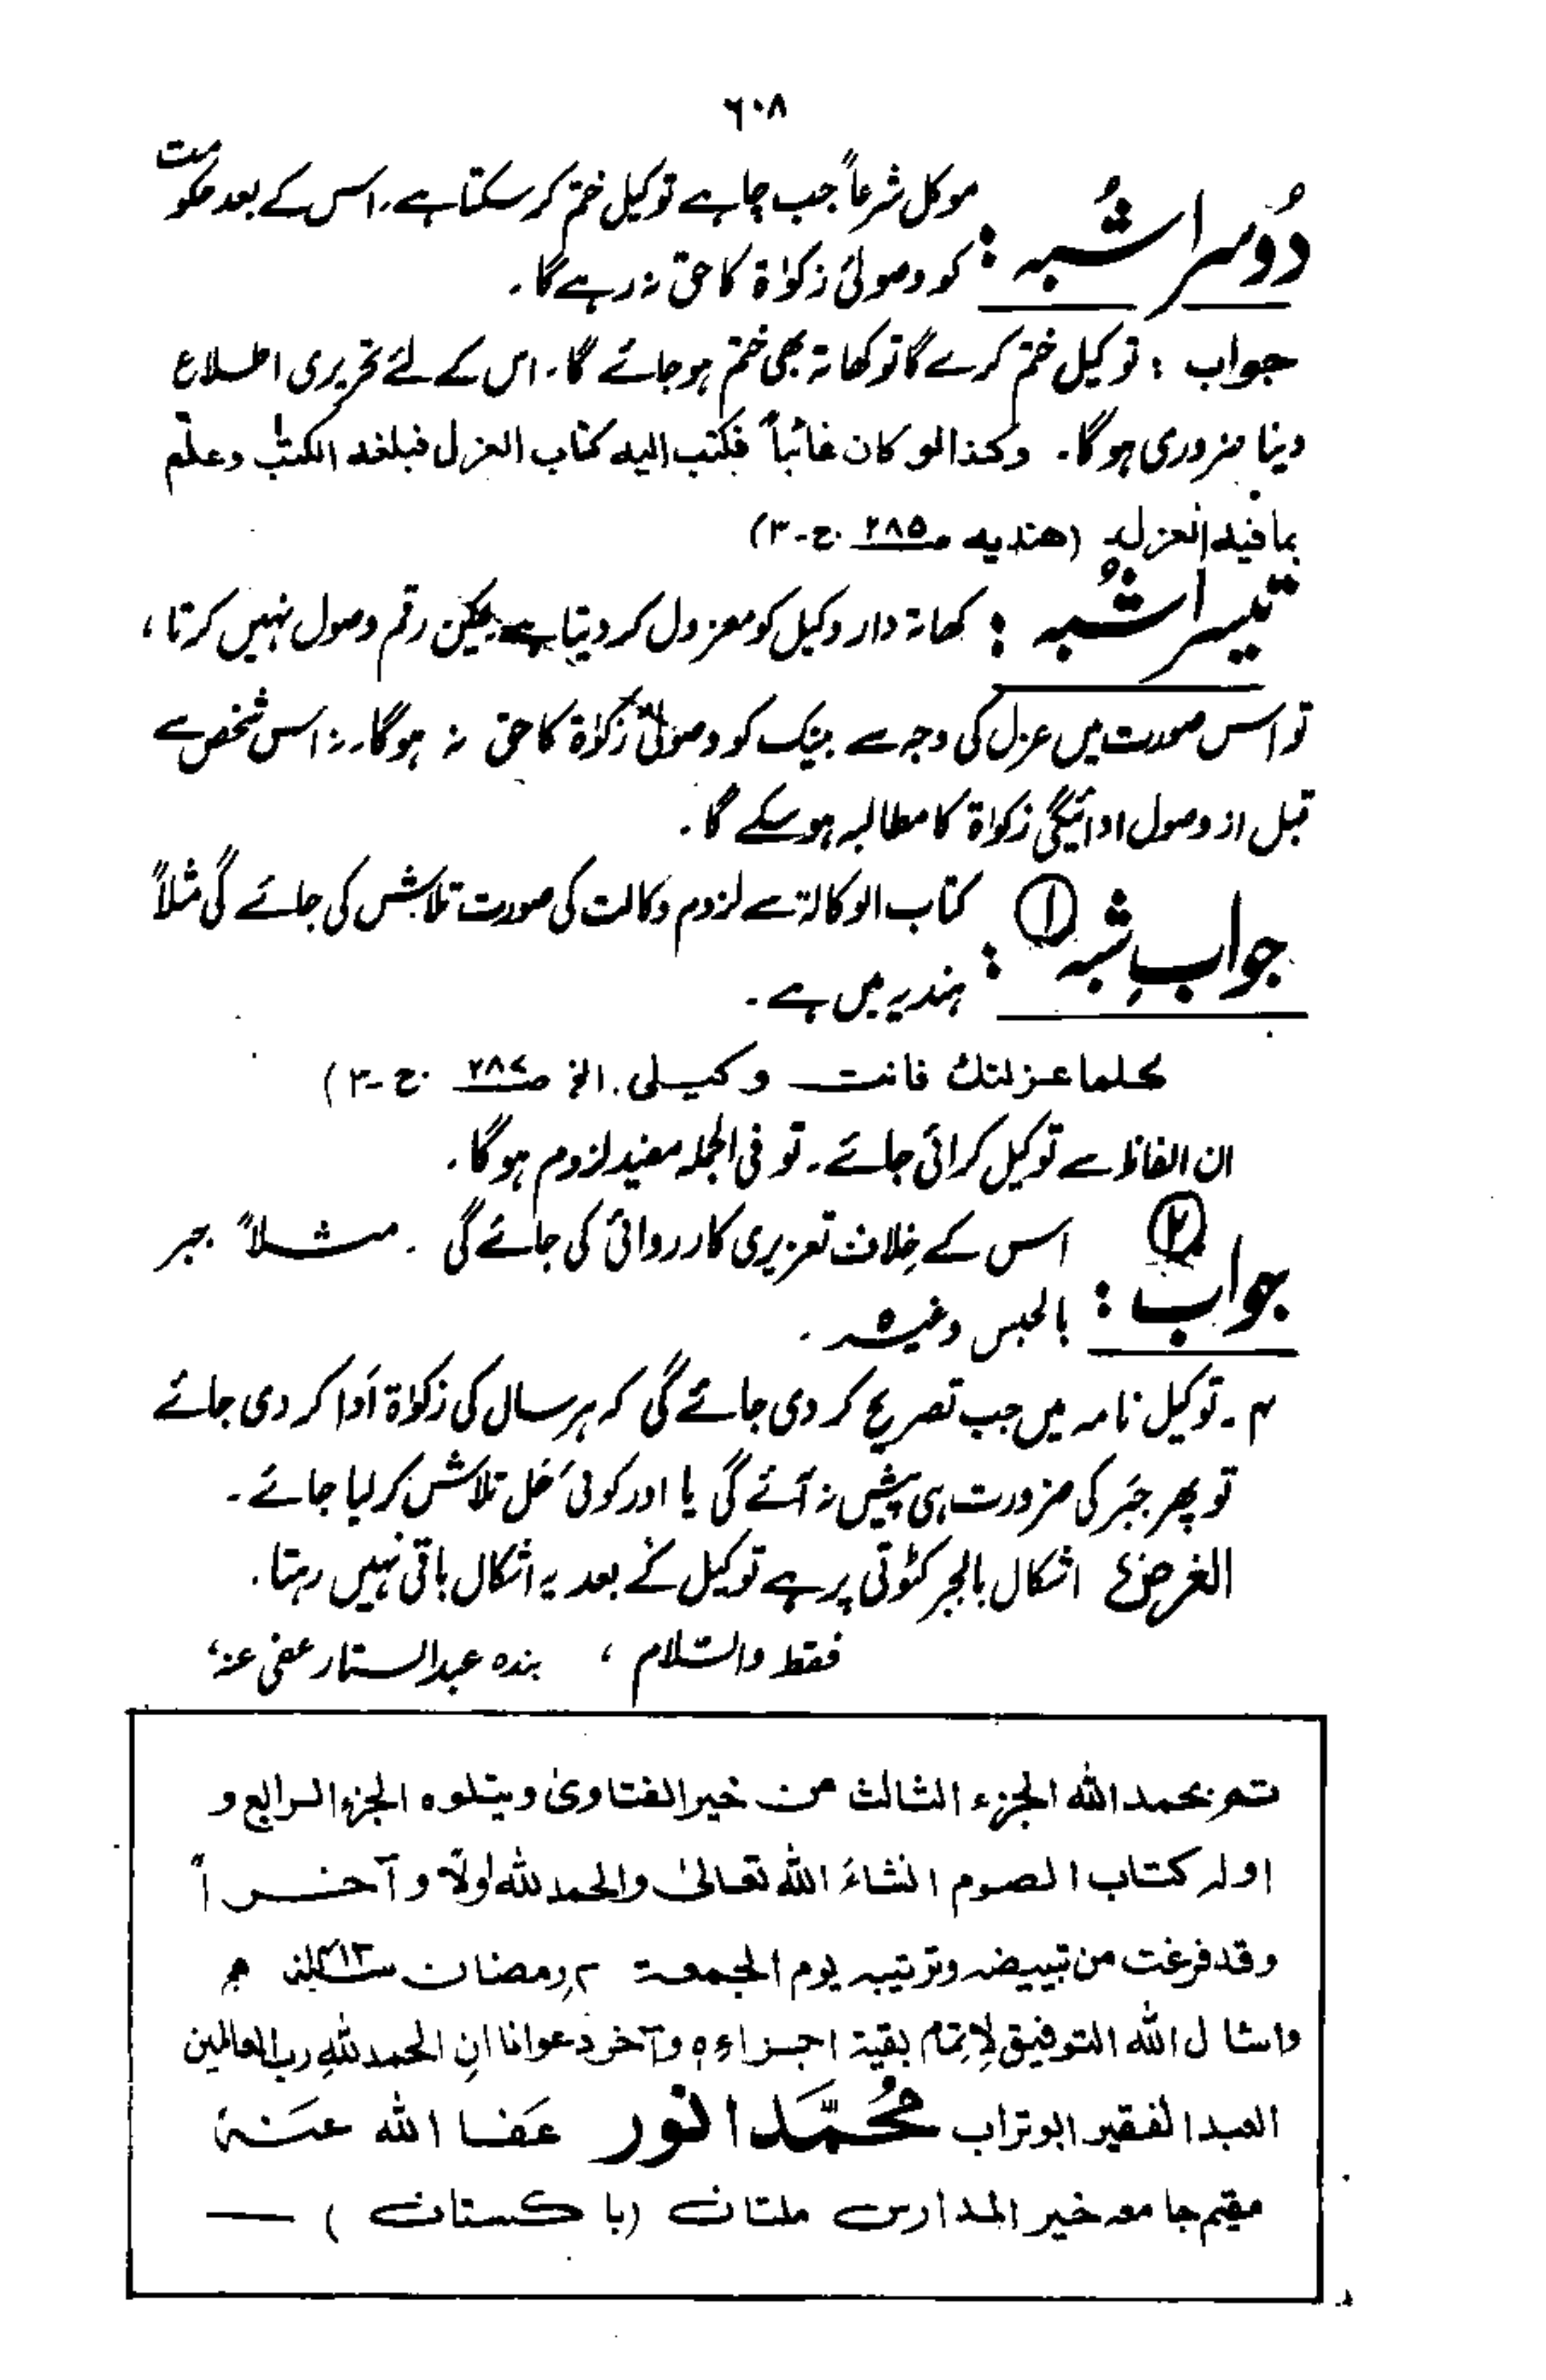 ٦٠٨
دُوسرا شُبہ : موکل شرعاً جب چاہے توکیل ختم کر سکتا ہے، اس کے بعد حکومت
کو وصولیٔ زکوٰۃ کا حق نہ رہے گا۔
جواب : توکیل ختم کرے گا تو کھاتہ بھی ختم ہو جائے گا۔ اس کے لئے تحریری اطلاع
دینا ضروری ہو گا۔ وکذا لو کان غائباً فکتب الیہ کتاب العزل فبلغہ الکتٰب وعلم
بما فیہ العزل (ھندیہ صـ ۲۸۵ ج-۳)
تیسرا شُبہ : کھاتہ دار وکیل کو معزول کر دیتا ہے لیکن رقم وصول نہیں کرتا،
تو اس صورت میں عزل کی وجہ سے بینک کو وصولیٔ زکوٰۃ کا حق نہ ہو گا۔ نہ اس شخص سے
قبل از وصول ادائیگی زکوٰۃ کا مطالبہ ہو سکے گا۔
جوابِ شبہ ① : کتاب الوکالۃ سے لزوم وکالت کی صورت تلاش کی جائے گی مثلاً
ہندیہ میں ہے۔
کلما عزلتک فانت وکیلی. الخ صـ ۲۸۷ ج-۳)
ان الفاظ سے توکیل کرائی جائے۔ تو فی الجملہ مفید لزوم ہو گا۔
جواب ② : اس کے خلاف تعزیری کارروائی کی جائے گی ۔ مثلاً جبر
بالحبس وغیرہ ۔
۴۔ توکیل نامہ میں جب تصریح کر دی جائے گی کہ ہر سال کی زکوٰۃ اَدا کر دی جائے
تو پھر جَبر کی ضرورت ہی پیش نہ آئے گی یا اور کوئی حَل تلاش کر لیا جائے۔
الغرض اشکال بالجبر کٹوتی پر ہے توکیل کے بعد یہ اشکال باقی نہیں رہتا۔
فقط والسّلام ، بندہ عبدالستار عفی عنہ،
تم بحمد اللہ الجزء الثالث من خیر الفتاویٰ ویتلوہ الجزء الرابع و
اولہ کتاب الصوم انشاءَ اللہ تعالیٰ والحمد للہ اولاً وآخراً
وقد فرغت من تبییضہ وترتیبہ یوم الجمعۃ ۲؍رمضان ۱۴۱۲ھ م
واسئال اللہ التوفیق لِاتمام بقیۃ اجزاءہ وآخر دعوانا ان الحمد للہِ رب العالمین
العبد الفقیر ابو تراب مُحَمَّد انور عَفا اللہ عَنہُ
مقیم جامعہ خیر المدارس ملتان (باکستان)